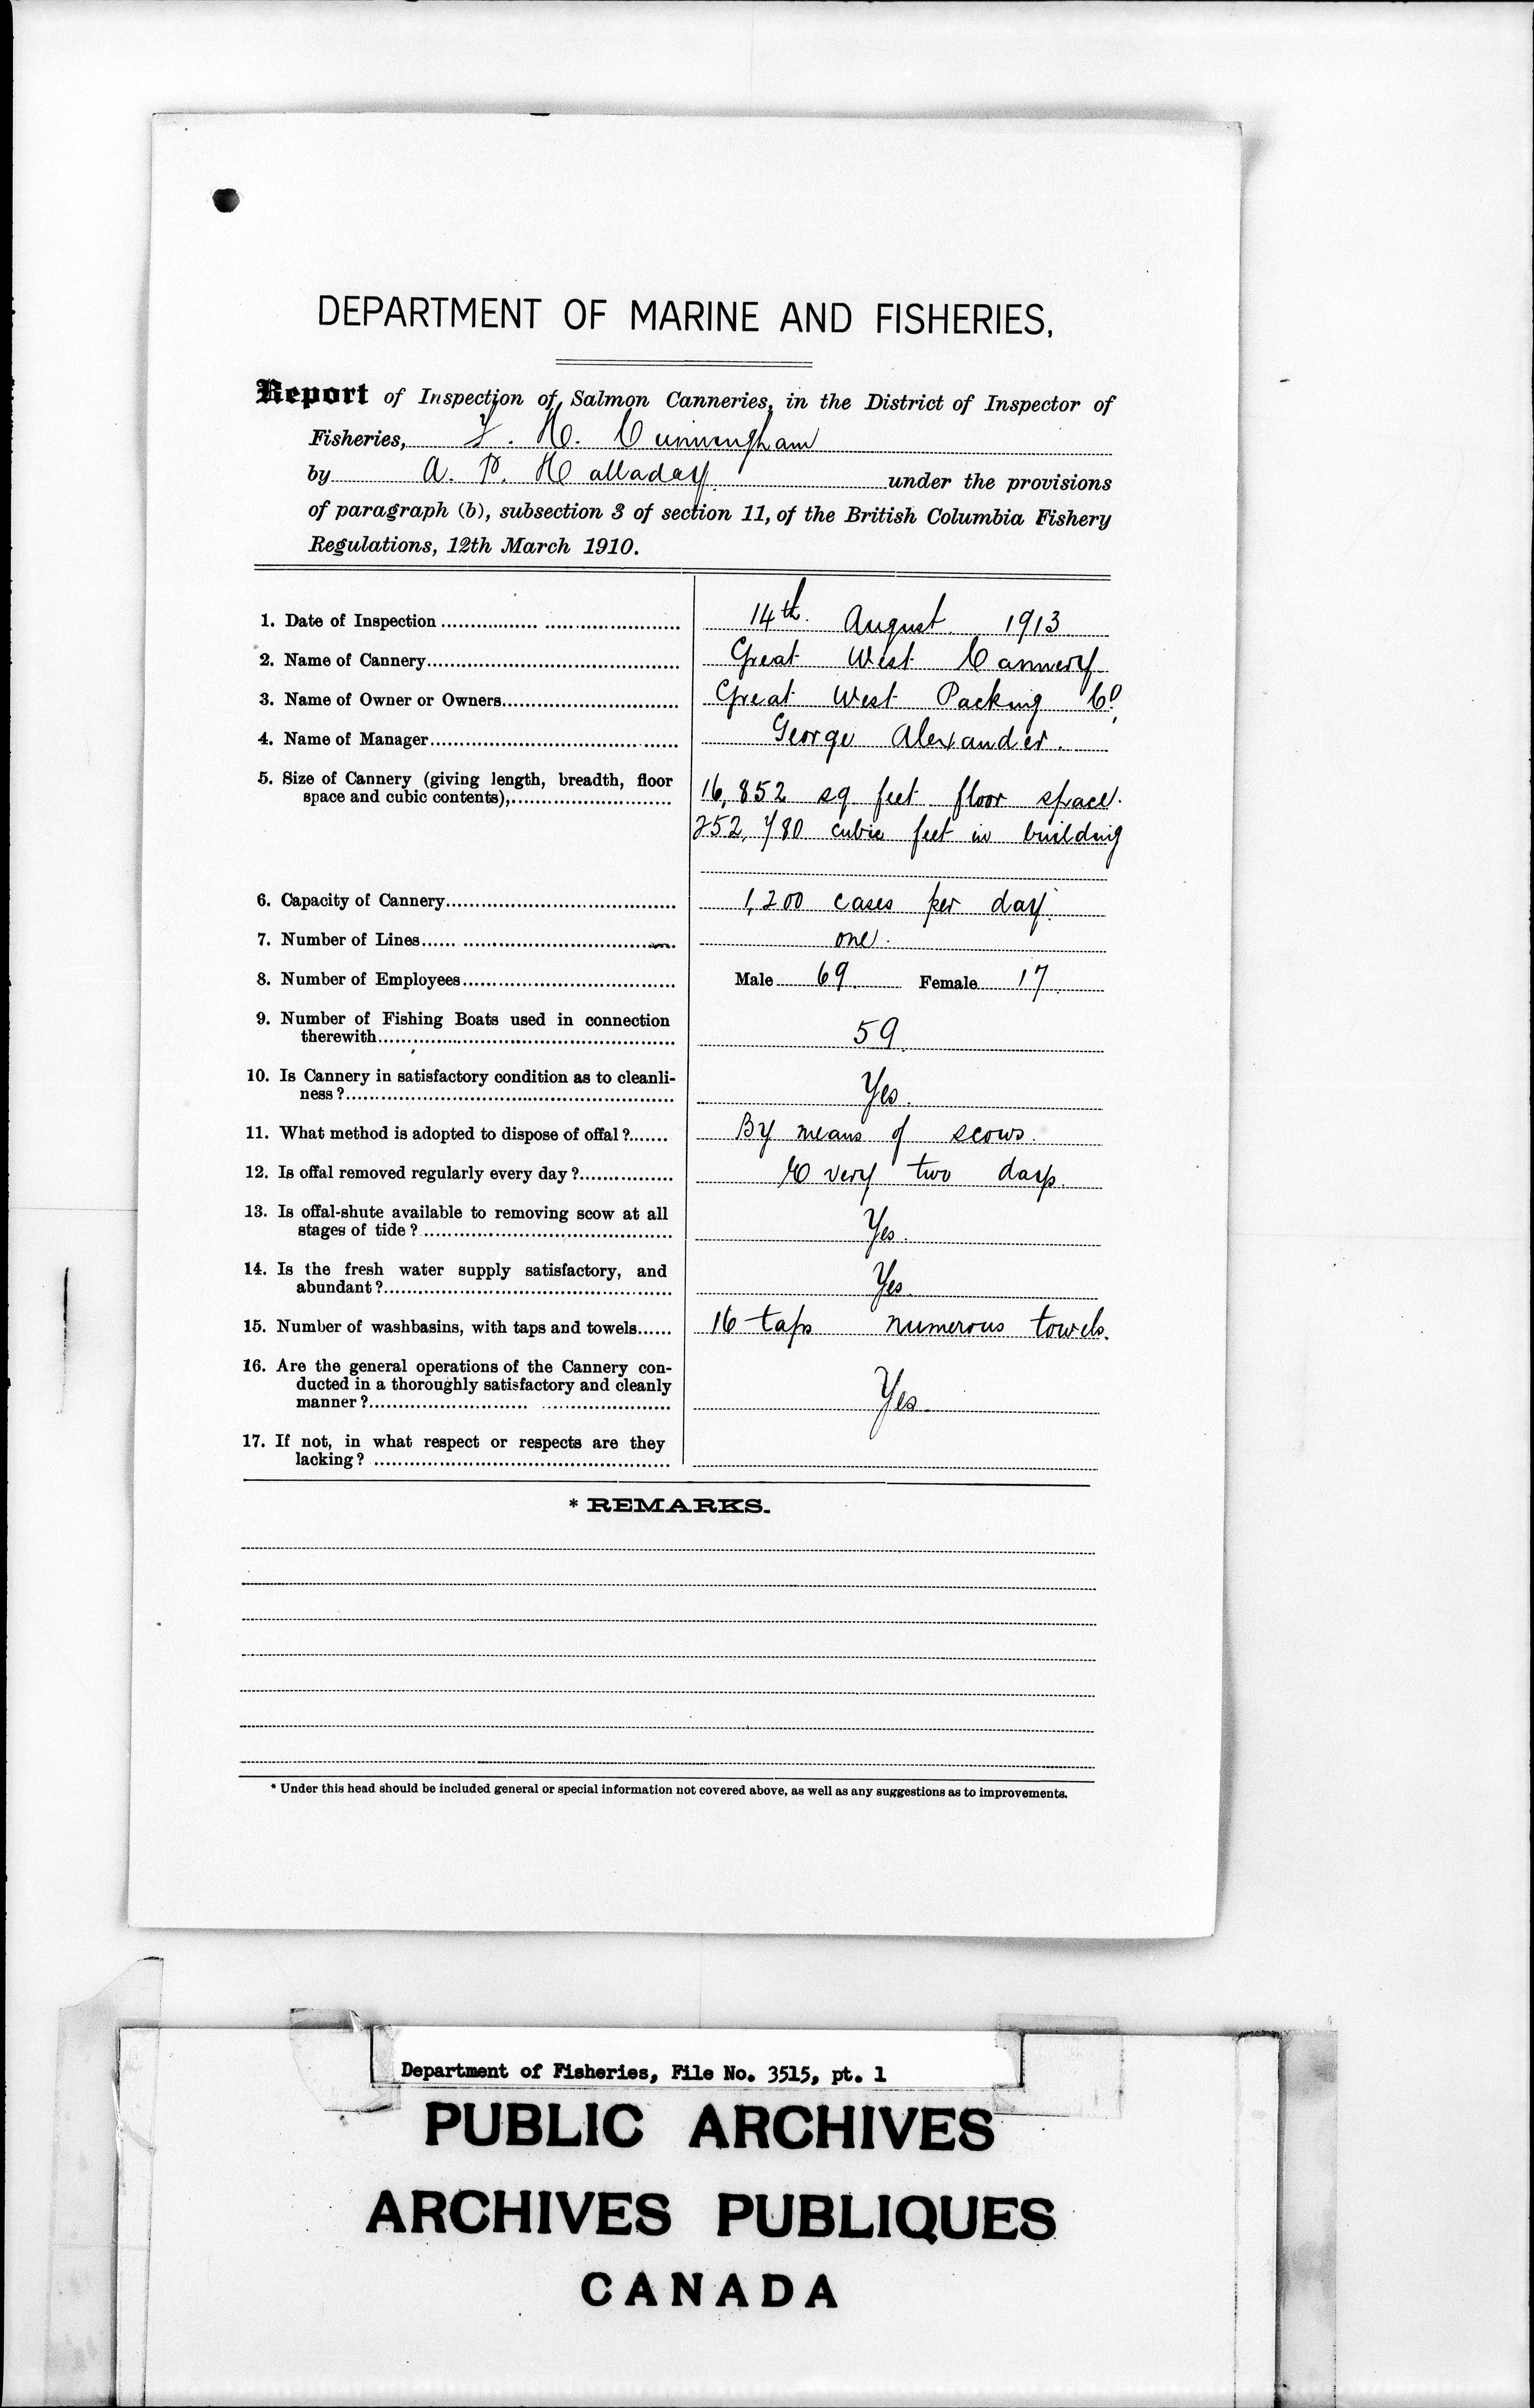 DEPARTMENT OF MARINE AND FISHERIES,
Report of Inspection of Salmon Canneries, in the District of Inspector of
Fisheries, F. H. Cunningham
by A. P. Halladay under the provisions
of paragraph (b), subsection 3 of section 11, of the British Columbia Fishery
Regulations, 12th March 1910.
1. Date of Inspection 14th. August 1913
2. Name of Cannery Great West Cannery
3. Name of Owner or Owners Great West Packing Co.
4. Name of Manager George Alexander.
5. Size of Cannery (giving length, breadth, floor
space and cubic contents), 16,852 sq feet floor space.
252,780 cubic feet in building
6. Capacity of Cannery 1,200 cases per day.
7. Number of Lines one.
8. Number of Employees Male 69. Female 17.
9. Number of Fishing Boats used in connection
therewith 59.
10. Is Cannery in satisfactory condition as to cleanli-
ness? Yes.
11. What method is adopted to dispose of offal? By means of scows.
12. Is offal removed regularly every day? Every two days.
13. Is offal-shute available to removing scow at all
stages of tide? Yes.
14. Is the fresh water supply satisfactory, and
abundant? Yes.
15. Number of washbasins, with taps and towels 16 taps numerous towels.
16. Are the general operations of the Cannery con-
ducted in a thoroughly satisfactory and cleanly
manner? Yes.
17. If not, in what respect or respects are they
lacking?
* REMARKS.
* Under this head should be included general or special information not covered above, as well as any suggestions as to improvements.
Department of Fisheries, File No. 3515, pt. 1
PUBLIC ARCHIVES
ARCHIVES PUBLIQUES
CANADA